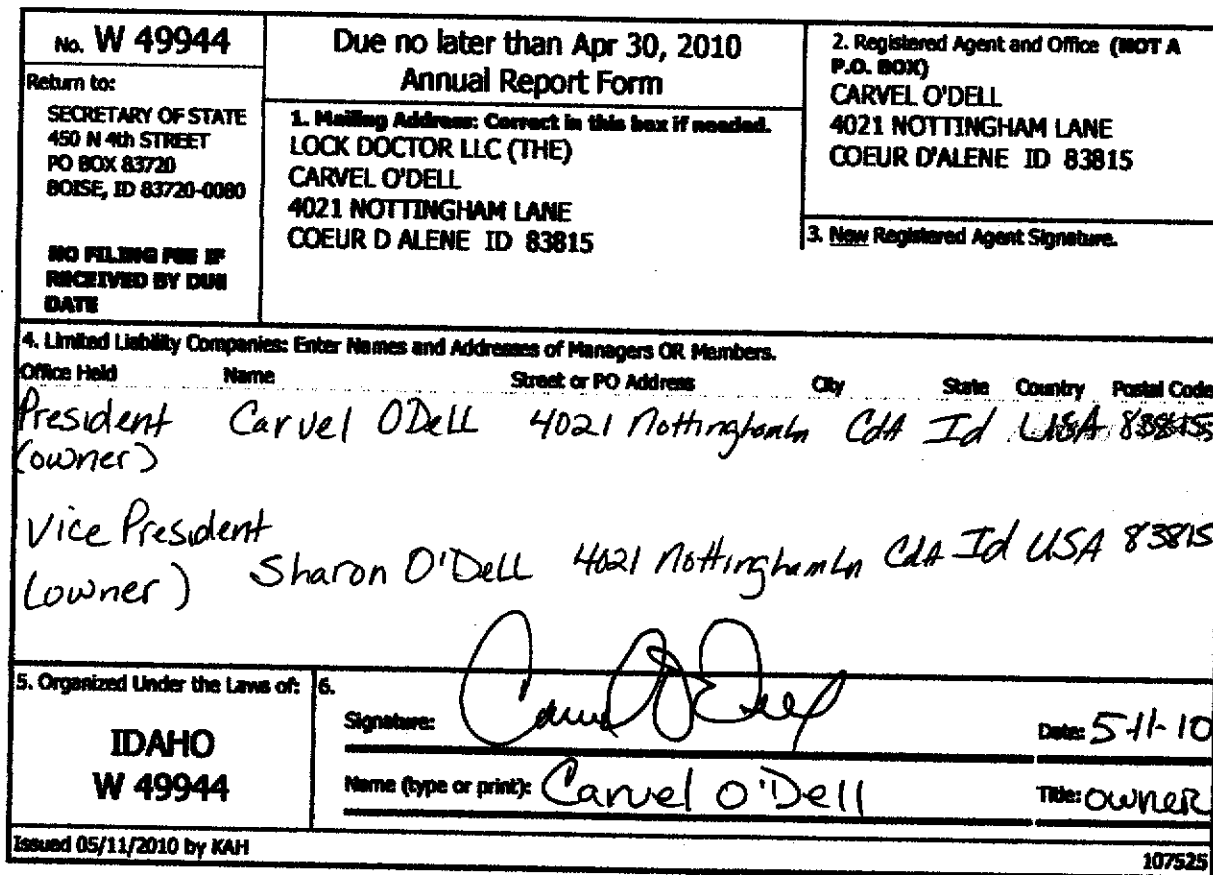 No. W 49944
Return to:
SECRETARY OF STATE
450 N 4th STREET
PO BOX 83720
BOISE, ID 83720-0080
NO FILING FEE IF
RECEIVED BY DUE
DATE
Due no later than Apr 30, 2010
Annual Report Form
1. Mailing Address: Correct in this box if needed.
LOCK DOCTOR LLC (THE)
CARVEL O'DELL
4021 NOTTINGHAM LANE
COEUR D ALENE ID 83815
2. Registered Agent and Office (NOT A
P.O. BOX)
CARVEL O'DELL
4021 NOTTINGHAM LANE
COEUR D'ALENE ID 83815
3. New Registered Agent Signature.
4. Limited Liability Companies: Enter Names and Addresses of Managers OR Members.
Office Held Name Street or PO Address City State Country Postal Code
President Carvel ODell 4021 Nottingham Ln CdA Id USA 83815
(owner)
Vice President
(owner) Sharon O'Dell 4021 Nottingham Ln CdA Id USA 83815
5. Organized Under the Laws of:
IDAHO
W 49944
6.
Signature: Carvel O'Dell
Date: 5-11-10
Name (type or print): Carvel O'Dell
Title: owner
Issued 05/11/2010 by KAH
107525